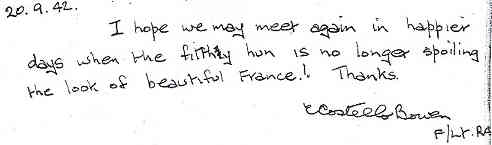 20.9.42.
I hope we may meet again in happier
days when the filthy hun is no longer spoiling
the look of beautiful France.! Thanks.
Costello Bowen
F/Lt. RA